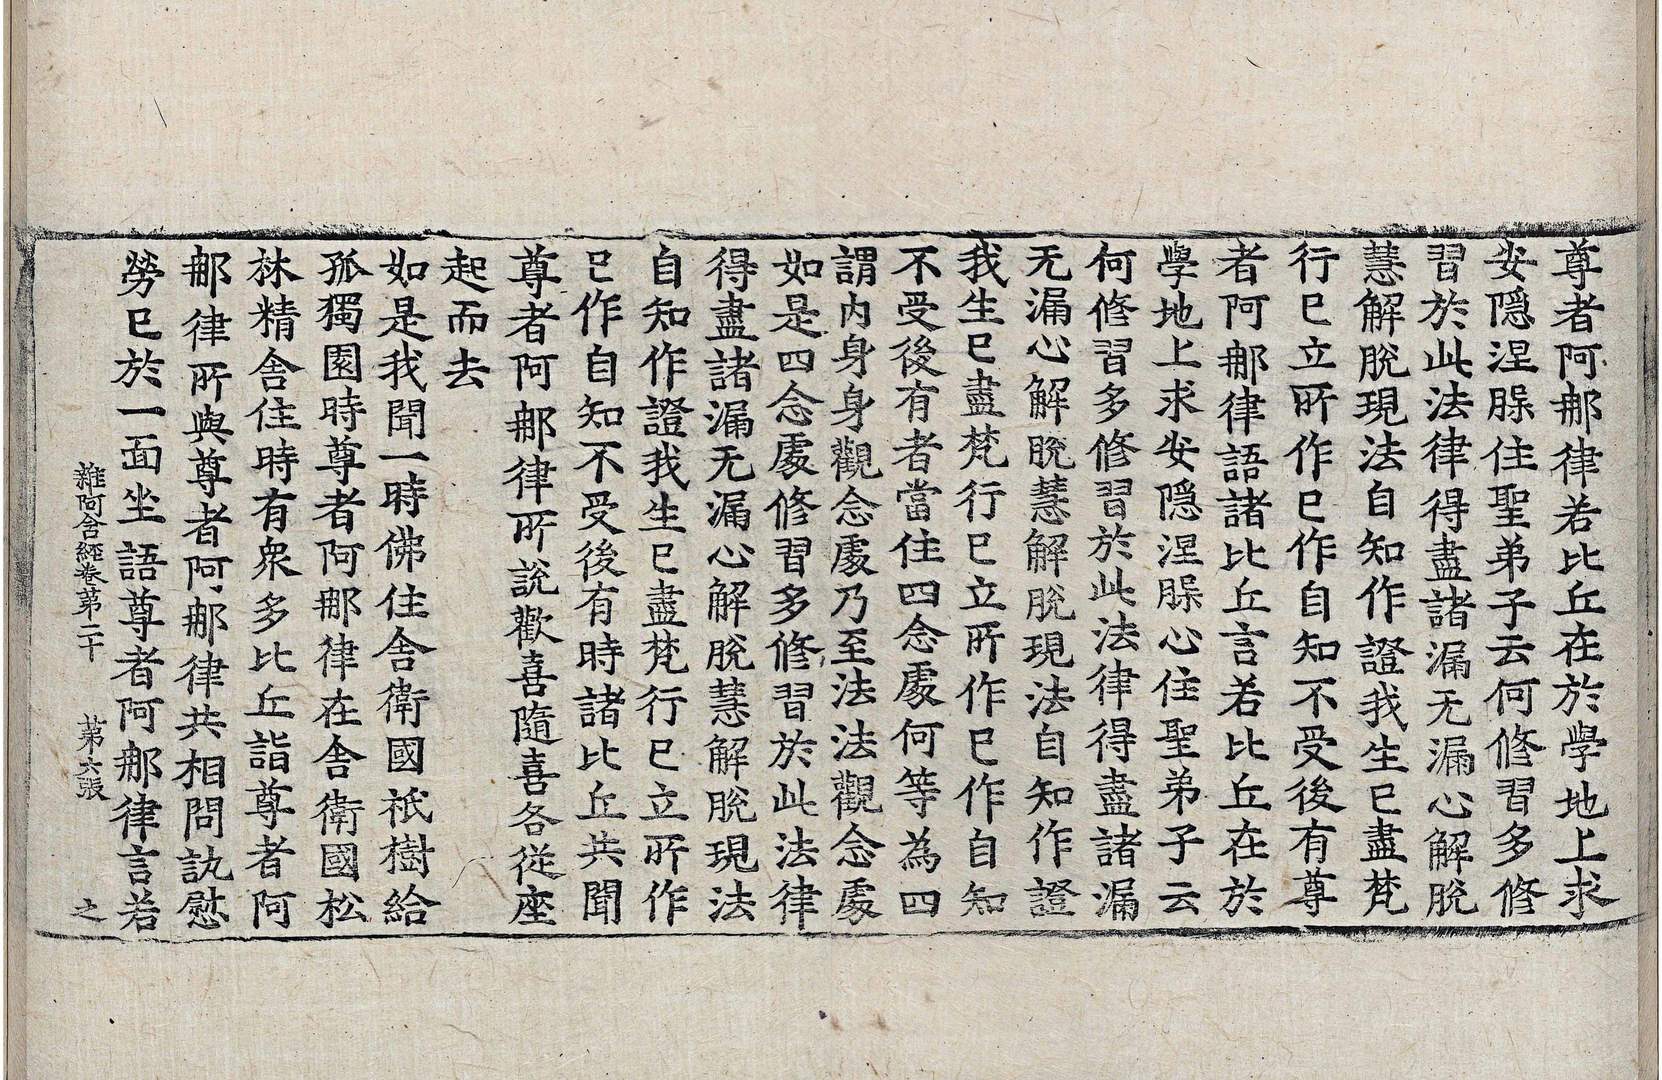 尊者阿那律若比丘在於學地上求
安隱涅槃住聖弟子云何修習多修
習於此法律得盡諸漏无漏心解脫
慧解脫現法自知作證我生已盡梵
行已立所作已作自知不受後有尊
者阿那律語諸比丘言若比丘在於
學地上求安隱涅槃心住聖弟子云
何修習多修習於此法律得盡諸漏
无漏心解脫慧解脫現法自知作證
我生已盡梵行已立所作已作自知
不受後有者當住四念處何等為四
謂內身身觀念處乃至法法觀念處
如是四念處修習多修習於此法律
得盡諸漏无漏心解脫慧解脫現法
自知作證我生已盡梵行已立所作
已作自知不受後有時諸比丘共聞
尊者阿那律所說歡喜隨喜各從座
起而去
如是我聞一時佛住舍衛國祇樹給
孤獨園時尊者阿那律在舍衛國松
林精舍住時有衆多比丘詣尊者阿
那律所與尊者阿那律共相問訊慰
勞已於一面坐語尊者阿那律言若
雜阿含經卷第二十 第六張 之